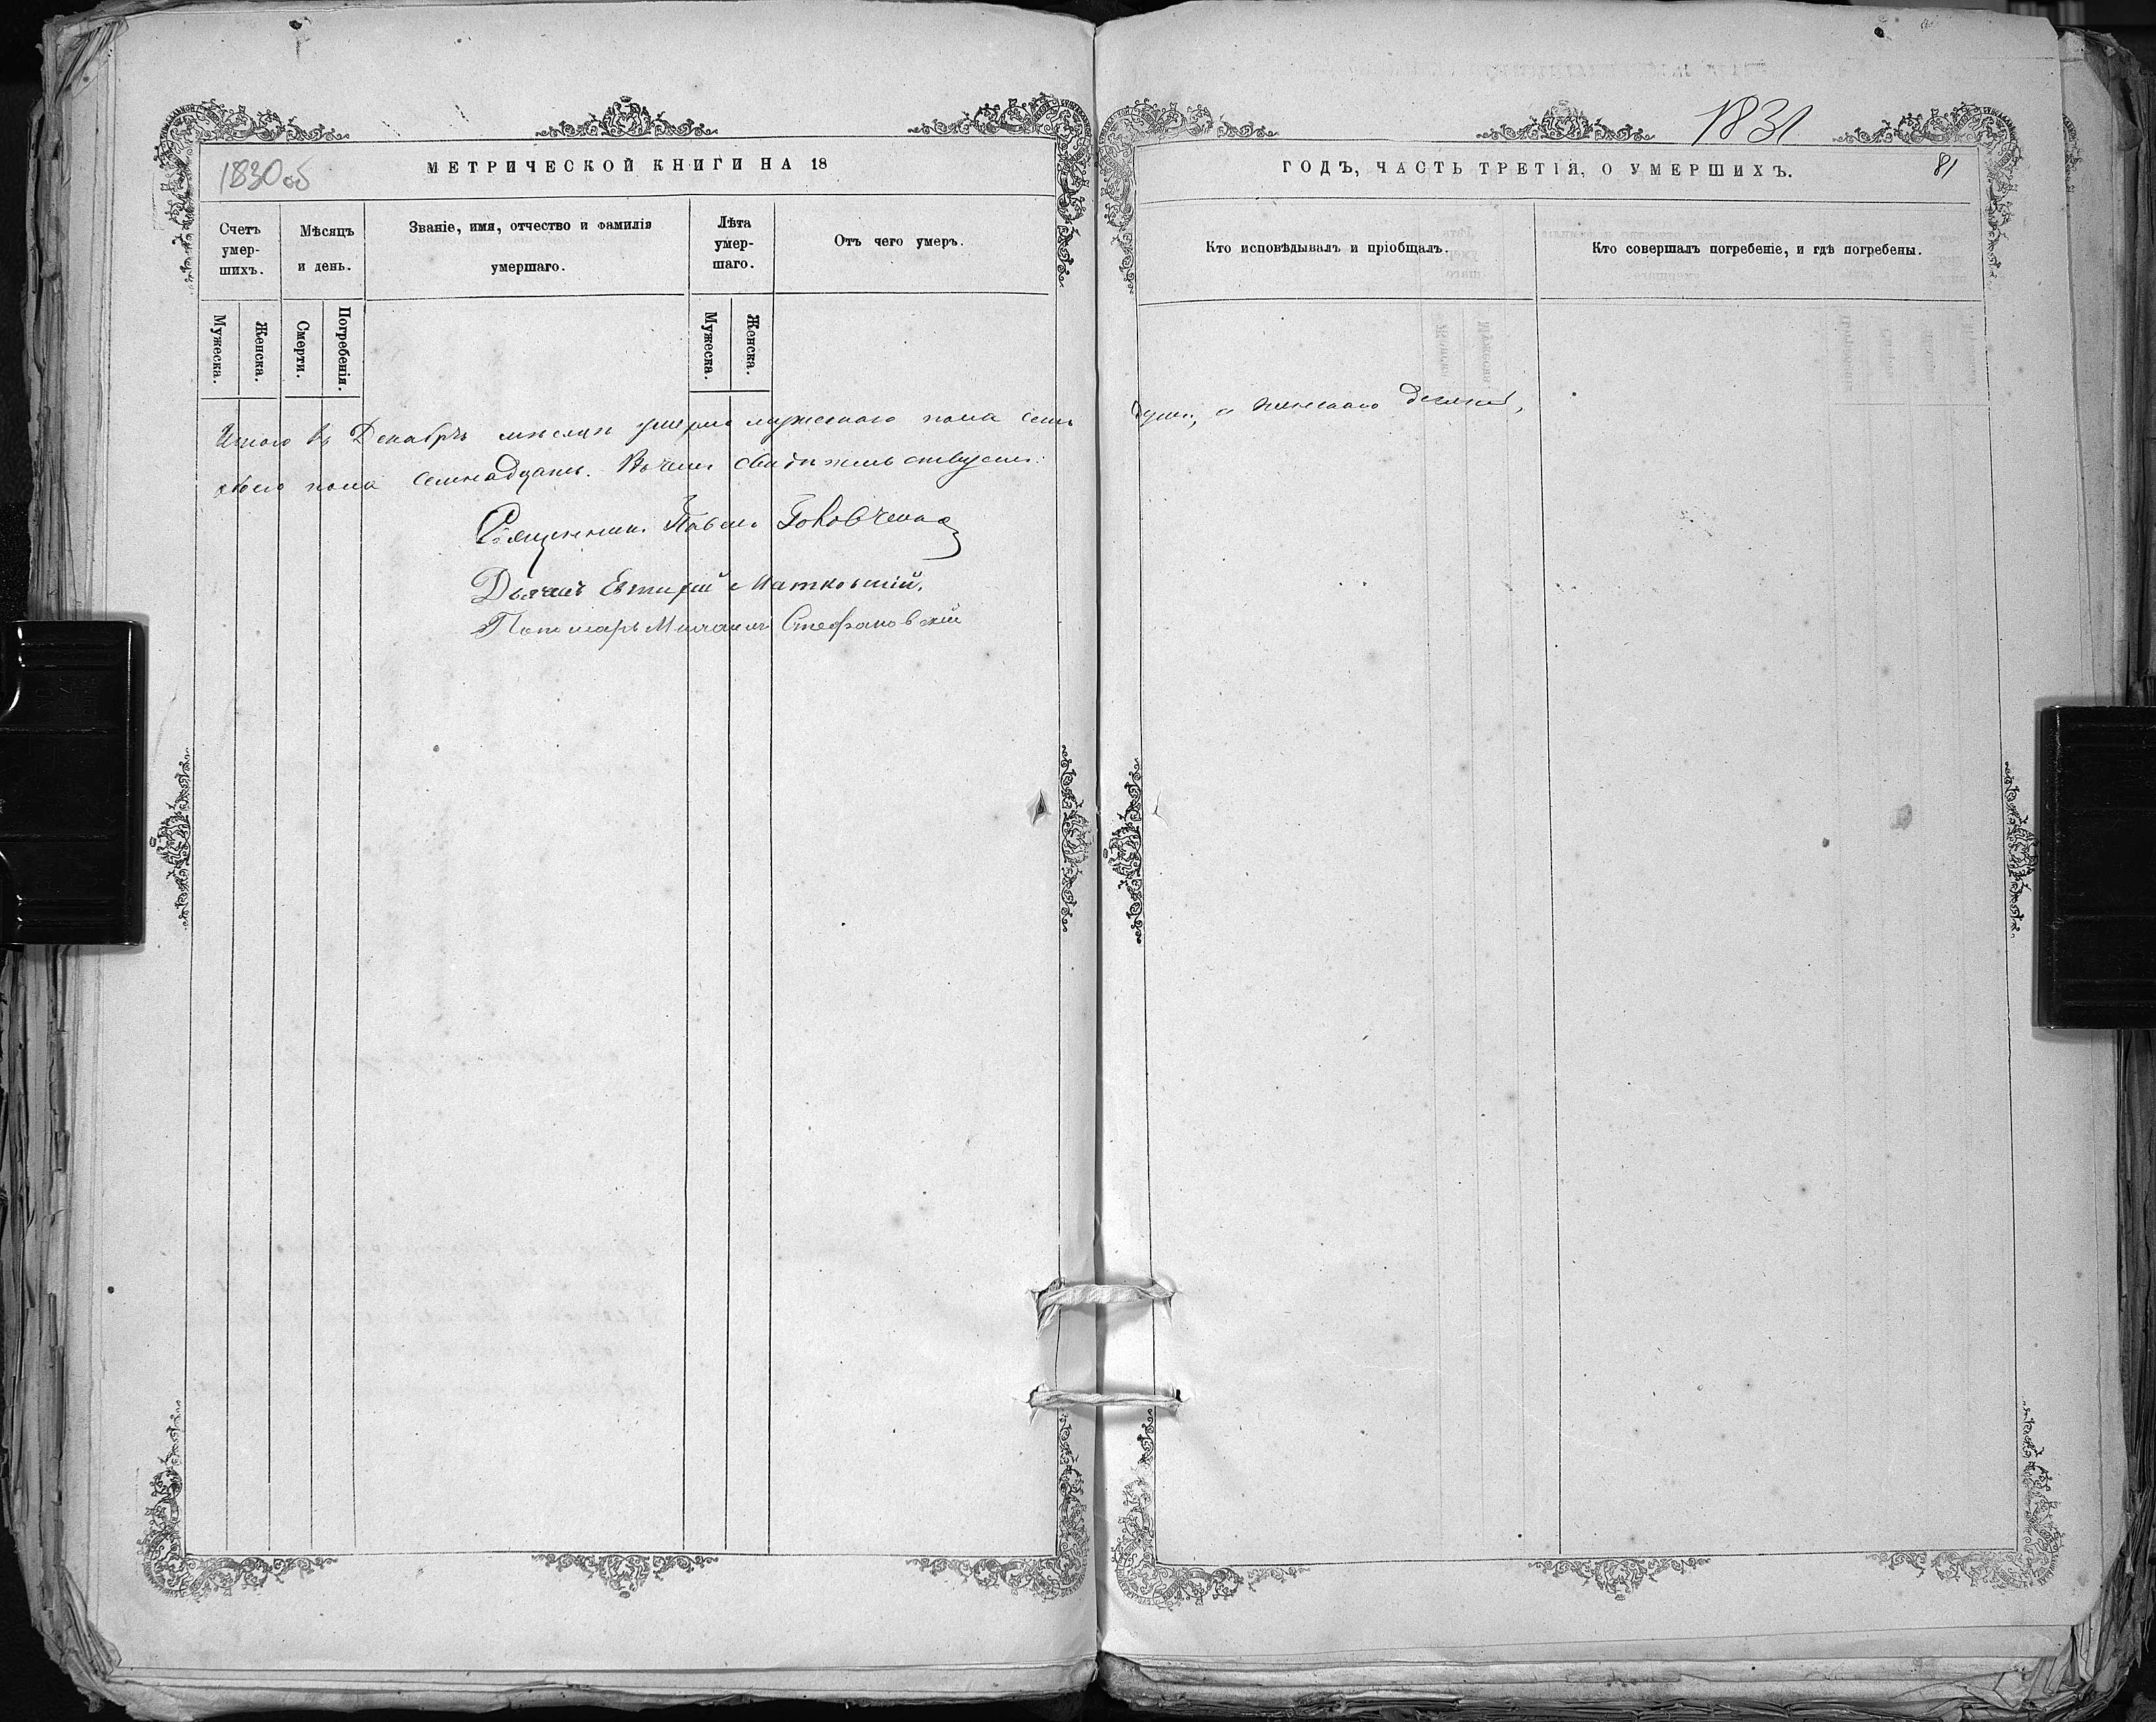 1830об
МЕТРИЧЕСКОЙ КНИГИ НА 18
Счетъ умер-шихъ.
Мѣсяцъ и день.
Званіе, имя, отчество и фамилія умершаго.
Лѣта умер-шаго.
Отъ чего умеръ.
Мужеска.
Женска.
Смерти.
Погребенія.
Мужеска.
Женска.
Итого въ Декабрѣ мѣсяцѣ умерло мужескаго пола семь
обоего пола семнадцать. Въ чемъ свидѣтельствуемъ:
Священникъ Павелъ
Дьячекъ Евтихій Матковскій.
Пономарь Михаилъ Стефановскій
1831
ГОДЪ, ЧАСТЬ ТРЕТІЯ, О УМЕРШИХЪ.
81
Кто исповѣдывалъ и пріобщалъ.
Кто совершалъ погребеніе, и гдѣ погребены.
душъ, а женскаго десять,